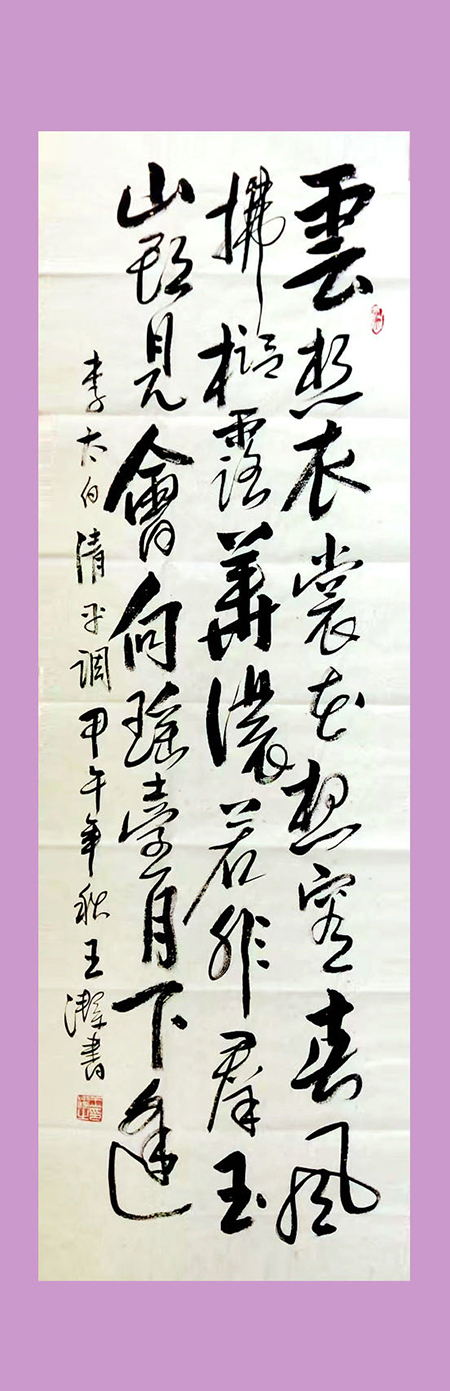 雲想衣裳花想容春風
拂檻露華濃若非群玉
山頭見會向瑤臺月下逢
李太白清平调甲午年秋王澤書